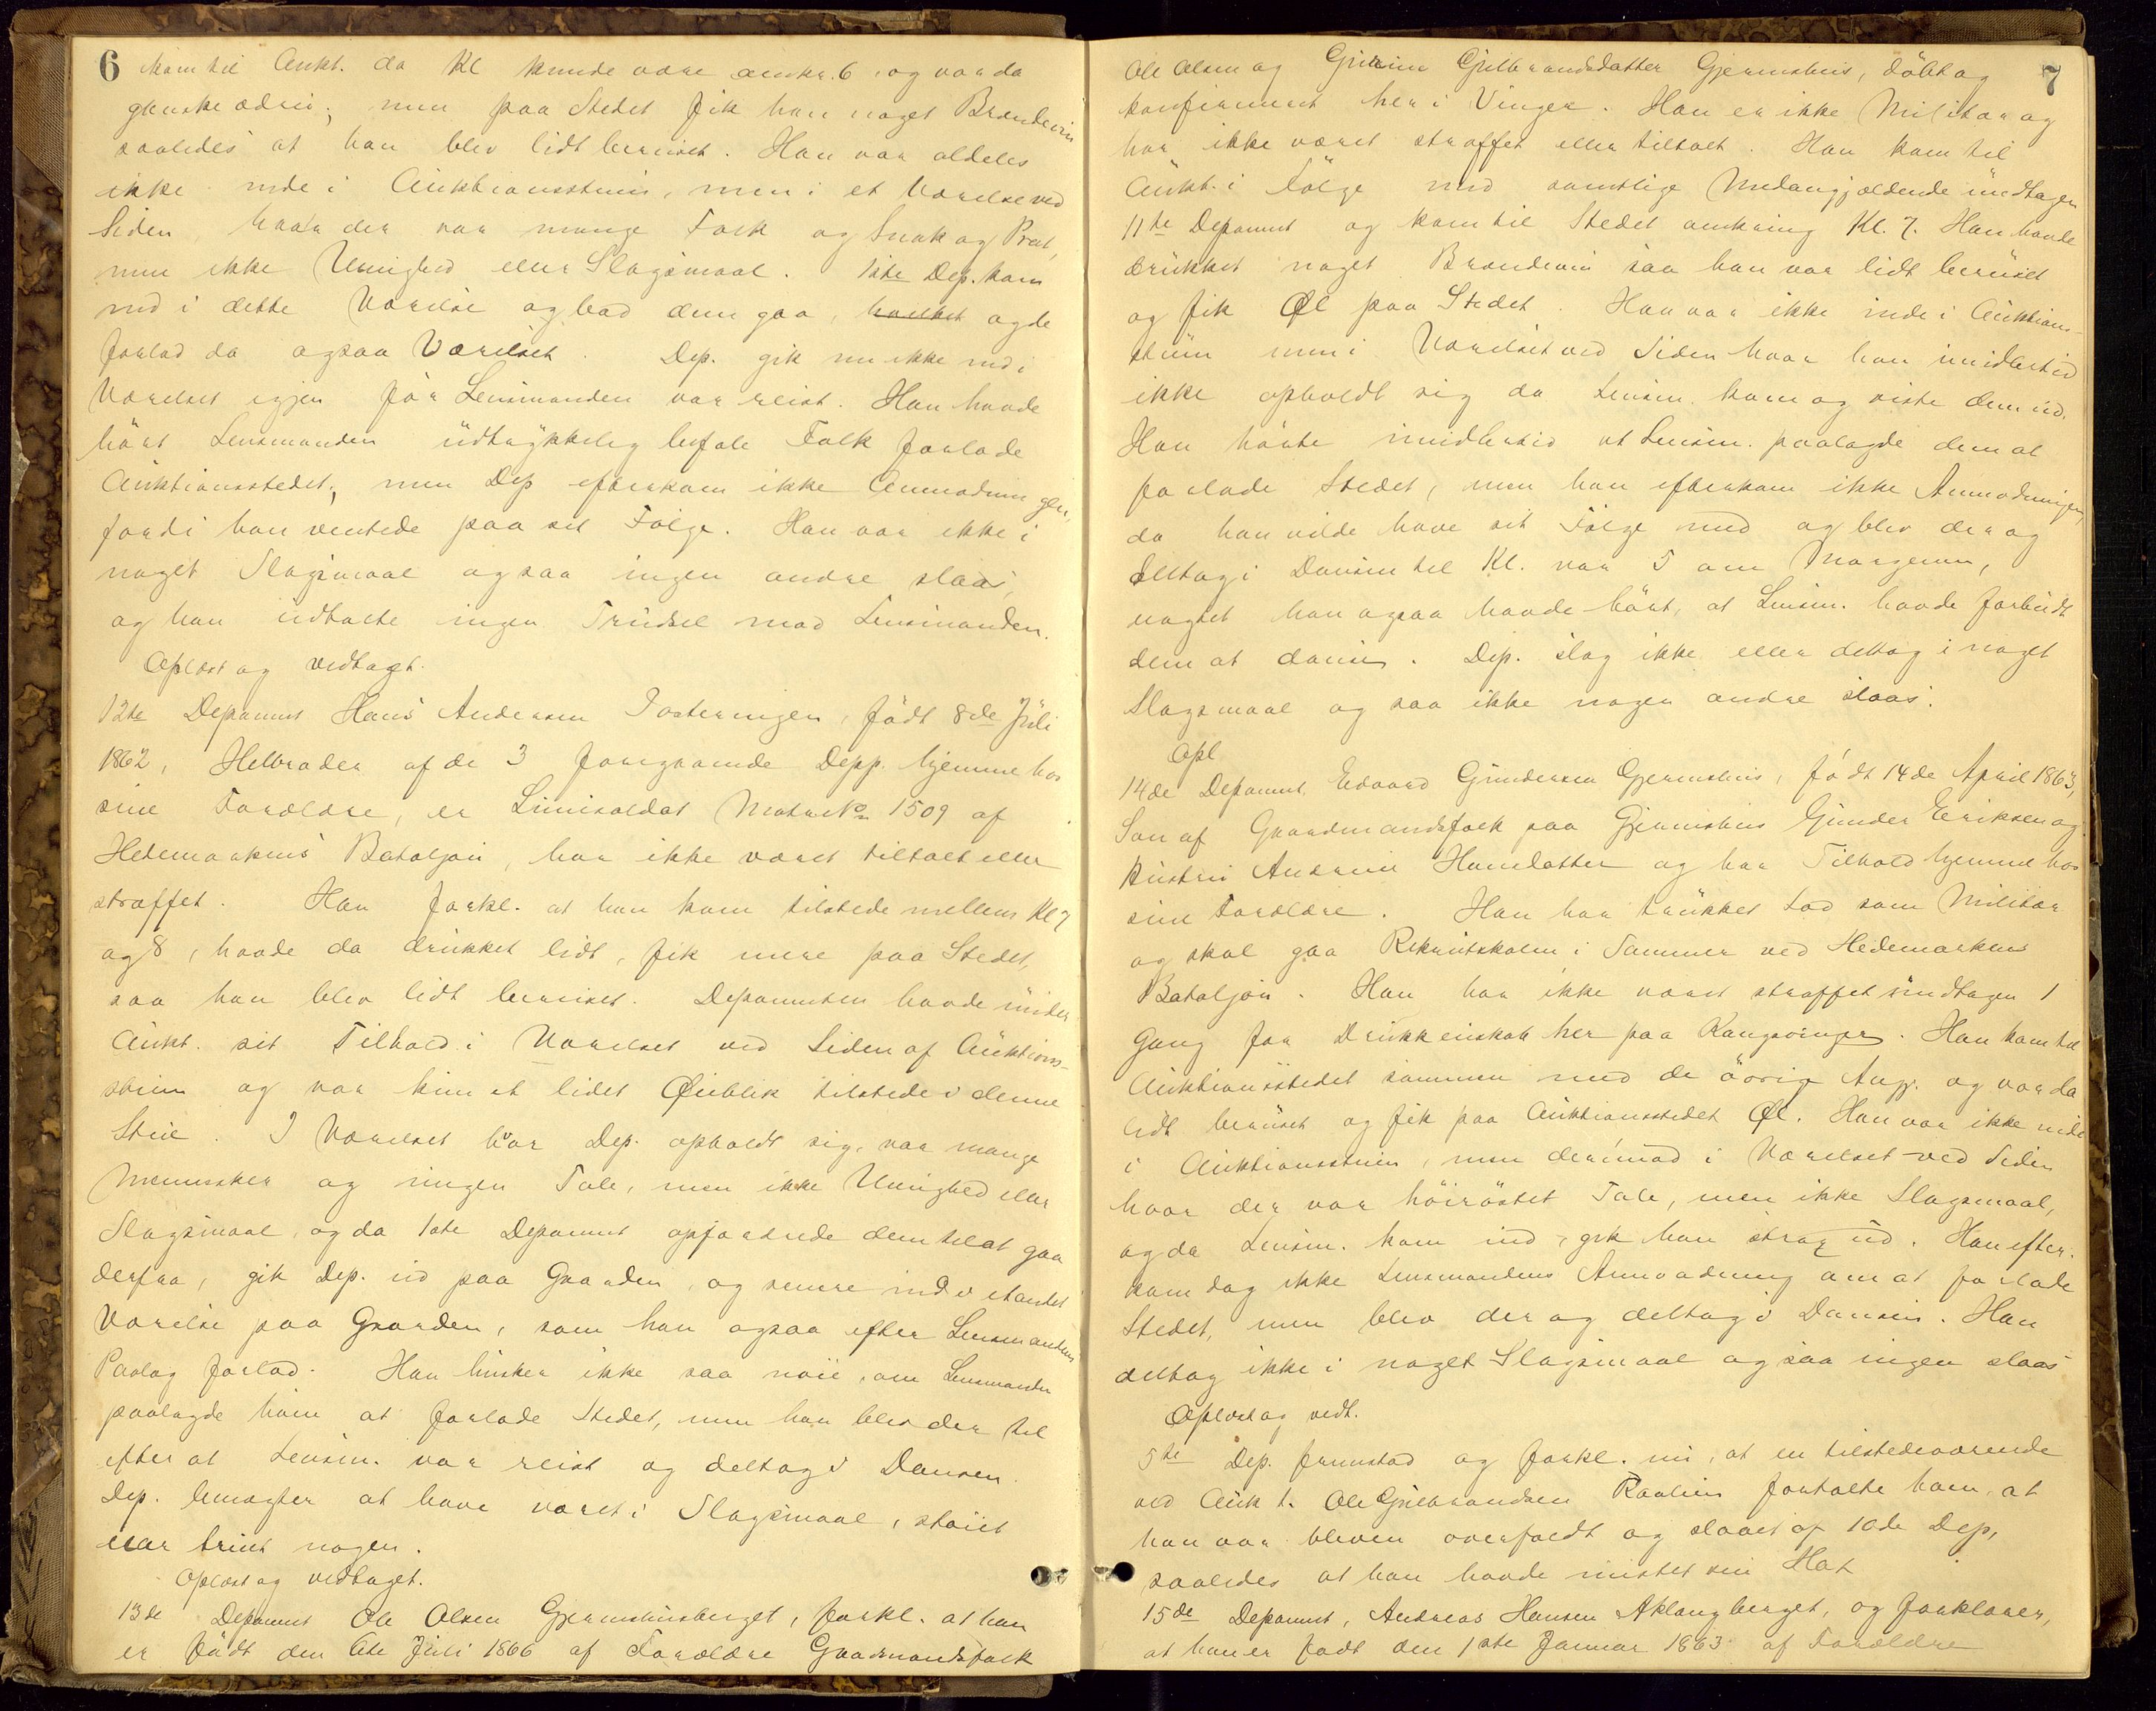 6
kom til Aukt. da Kl kunde være omkr. 6, og var da
ganske ædru; men paa Stedet fik han noget Brændevin
saaledes at han blev lidt beruset. Han var aldeles
ikke inde i Auktionsstuen, men i et Værelse ved
Siden hvor der var mange Folk og Snak og Prat,
men ikke Uenighed eller Slagsmaal. 1ste Dep. kom
ind i dette Værelse og bad dem gaa, hvilket og de
forlod da ogsaa Værelset. Dep. gik nu ikke ind i
Værelset igjen før Lensmanden var reist. Han havde
hørt Lensmanden udtrykkelig befale Folk forlade
Auktionsstedet; men Dep efterkom ikke Anmodningen,
fordi han ventede paa sit Følge. Han var ikke i
noget Slagsmaal og saa ingen andre slaas,
og han udtalte ingen Trudsel mod Lensmanden.
Oplæst og vedtaget.
12te Deponent Hans Andersen Tosteringen, født 8de Juli
1862, Helbroder af de 3 foregaaende Depp. hjemme hos
sine Forældre, er Liniesoldat Matr No 1509 af
Hedemarkens Bataljon, har ikke været tiltalt eller
straffet. Han forkl. at han kom tilstede mellem Kl 7
og 8, havde da drukket lidt, fik mere paa Stedet,
saa han blev lidt beruset. Deponenten havde under
Aukt. sit Tilhold i Værelset ved Siden af Auktions-
stuen og var kun et lidet Øieblik tilstede i denne
Stue. I Værelset hvor Dep. opholdt sig, var mange
Mennesker og megen Tale, men ikke Uenighed eller
Slagsmaal, og da 1ste Deponent opfordrede dem til at gaa
derfra, gik Dep. ud paa Gaarden, og senere ind i et andet
Værelse paa Gaarden, som han ogsaa efter Lensmandens
Paalæg forlod. Han husker ikke saa nøie, om Lensmanden
paalagde ham at forlade Stedet, men han blev der til
efter at Lensm. var reist og deltog i Dansen.
Dep. benægter at have været i Slagsmaal, støiet
eller truet nogen.
Oplæst og vedtaget.
13de Deponent Ole Olsen Gjermshusberget, forkl. at han
er født den 6te Juli 1866 af Forældre Gaardmandsfolk
7
Ole Olsen og Gulbrandsdatter Gjermshus, døbt og
konfirmert her i Vinger. Han er ikke Militær og
har ikke været straffet eller tiltalt. Han kom til
Aukt. i Følge med samtlige Medangjældende undtagen
11te Deponent og kom til Stedet omkring Kl. 7. Han havde
drukket noget Brændevin saa han var lidt beruset
og fik Øl paa Stedet. Han var ikke inde i Auktions-
stuen men i Værelset ved Siden hvor han imidlertid
ikke opholdt sig da Lensm. kom og viste dem ud.
Han hørte imidlertid at Lensm. paalagde dem at
forlade Stedet, men han efterkom ikke Anmodningen,
da han vilde have sit Følge med og blev der og
deltog i Dansen til Kl. var 5 om Morgenen,
uagtet han ogsaa havde hørt, at Lensm. havde forbudt
dem at danse. Dep. slog ikke eller deltog i noget
Slagsmaal og saa ikke nogen andre slaas.
Opl
14de Deponent Edvard Gundersen Gjermshus, født 14de April 1863,
Søn af Gaardmandsfolk paa Gjermshus Gunder Eriksen og
Hustru Andrine Hansdatter og har Tilhold hjemme hos
sine Forældre. Han har trukket Lod som Militær
og skal gaa Rekrutskolen i Sommer ved Hedemarkens
Bataljon. Han har ikke været straffet undtagen 1
Gang for Drukkenskab her paa Kongsvinger. Han kom til
Auktionsstedet sammen med de øvrige Angj. og var da
lidt beruset og fik paa Auktionsstedet Øl. Han var ikke inde
i Auktionsstuen, men derimod i Værelset ved Siden
hvor der var høirøstet Tale, men ikke Slagsmaal,
og da Lensm. kom ind, gik han strax ud. Han efter-
kom dog ikke Lensmandens Anmodning om at forlade
Stedet, men blev der og deltog i Dansen. Han
deltog ikke i noget Slagsmaal og saa ingen slaas
Oplæst og vedt.
5te Dep. fremstod og forkl. nu, at en tilstedeværende
ved Aukt. Ole Gulbrandsen fortalte ham, at
han var bleven overfaldt og slaaet af 10de Dep,
saaledes at han havde mistet sin Hat
15de Deponent, Andreas Hansen Aklangberget, og forklarer,
at han er født den 1ste Januar 1863 af Forældre